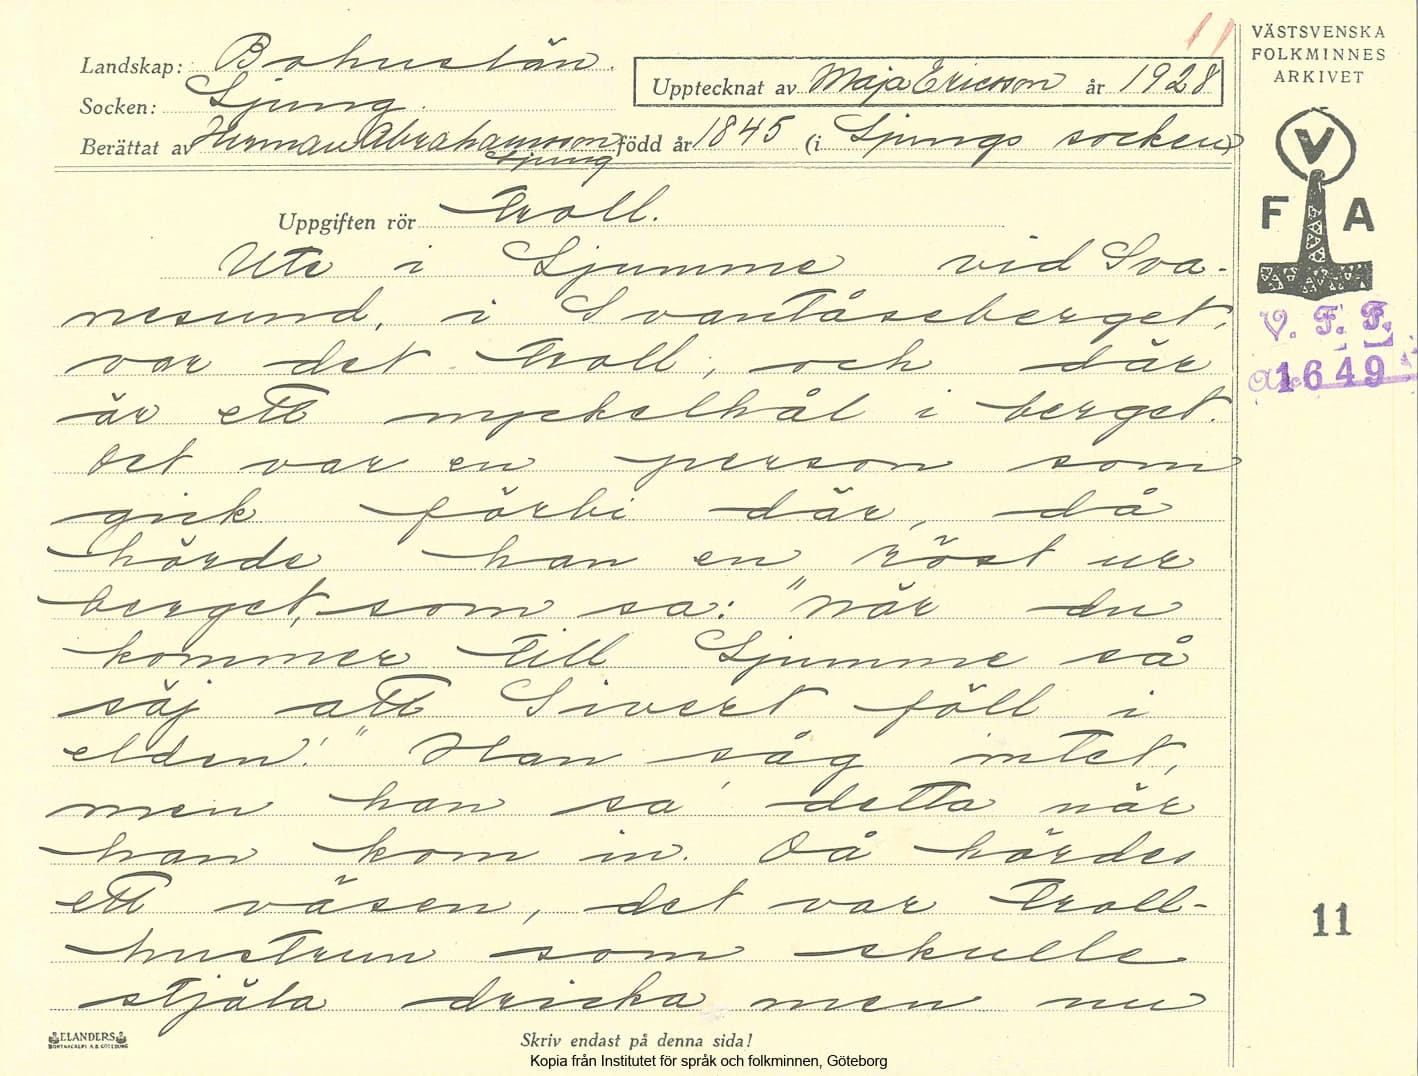 11
VÄSTSVENSKA
FOLKMINNES
ARKIVET
Landskap: Bohuslän.
Upptecknat av Maja Ericson år 1928
Socken: Ljung.
Berättat av Herman Abrahamsson född år 1845 (i Ljungs socken)
Ljung
Uppgiften rör Troll.
V
F A
V. F. F.
1649
Ute i Ljumme vid Sva-
nesund, i Svantåseberget,
var det Troll, och där
är ett nyckelhål i berget.
Det var en person som
gick förbi där, då
hörde han en röst ur
berget, som sa: "När du
kommer till Ljumme så
säj att Sivert föll i
elden!" Han såg intet,
men han sa' detta när
han kom in. Då hördes
ett väsen, det var Troll-
hustrun som skulle
stjäla dricka men nu
11
ELANDERS
BOKTRYCKERI A.B. GÖTEBORG
Skriv endast på denna sida!
Kopia från Institutet för språk och folkminnen, Göteborg